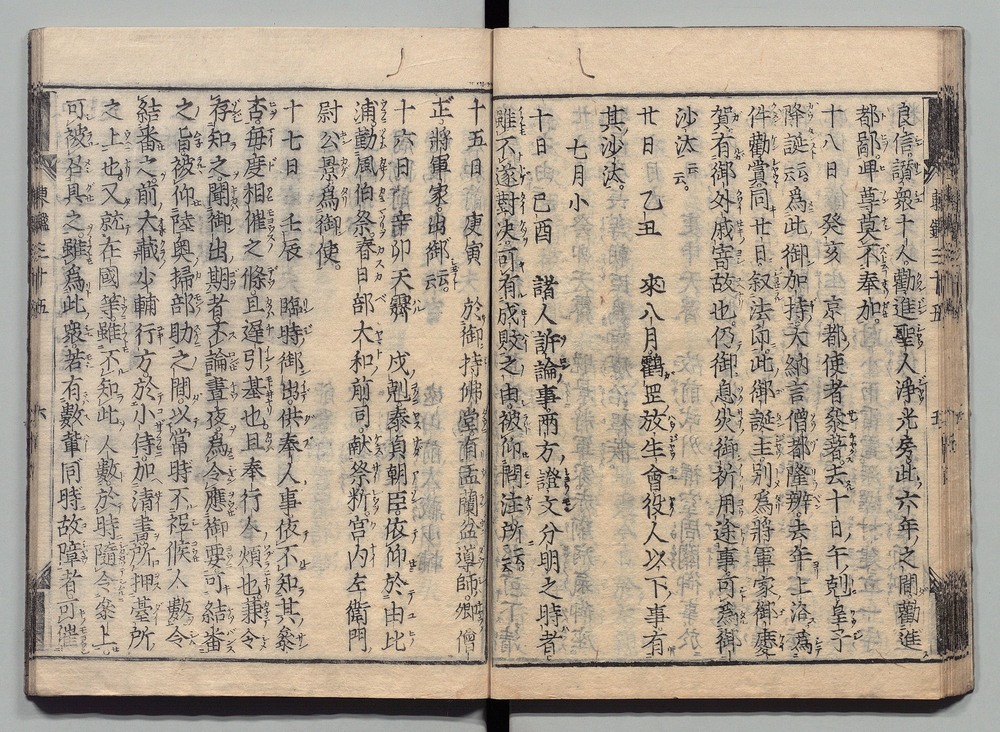 良信諧衆十人勸進聖人浄光房此六年之間勸進
都鄙卑尊莫不奉加
十八日癸亥京都使者參著去十日午剋皇子
降誕云云爲此御加持大納言僧都隆辨去年上洛爲
件勸賞同廿日叙法印此御誕生別爲將軍家御慶
賀有御外戚寄故也仍御息災御祈用途事可爲御
沙汰云云
廿日乙丑來八月鶴岡放生會役人以下事有
其沙汰
七月小
十日己酉諸人訴論事兩方證文分明之時者
雖不遂對決可有成敗之由被仰問注所云云
十五日庚寅於御持佛堂有盂蘭盆導師卿僧
正將軍家出御云云
十六日辛卯天霽戌剋泰貞朝臣依仰於由比
浦勤風伯祭春日部大和前司献祭料宮内左衛門
尉公景爲御使
十七日壬辰臨時御出供奉人事依不知其參
否毎度相催之條且遅引基也且奉行人煩也兼令
存知之聞御出期者不論晝夜爲令應御要可結番
之旨被仰陸奥掃部助之間以當時不祗候人數令
結番之前大藏少輔行方於小侍加清書所押基所
之上也又就在國等雖不知此人數於時隨令參上
可被召具之雖爲此衆若有數輩同時故障者可催